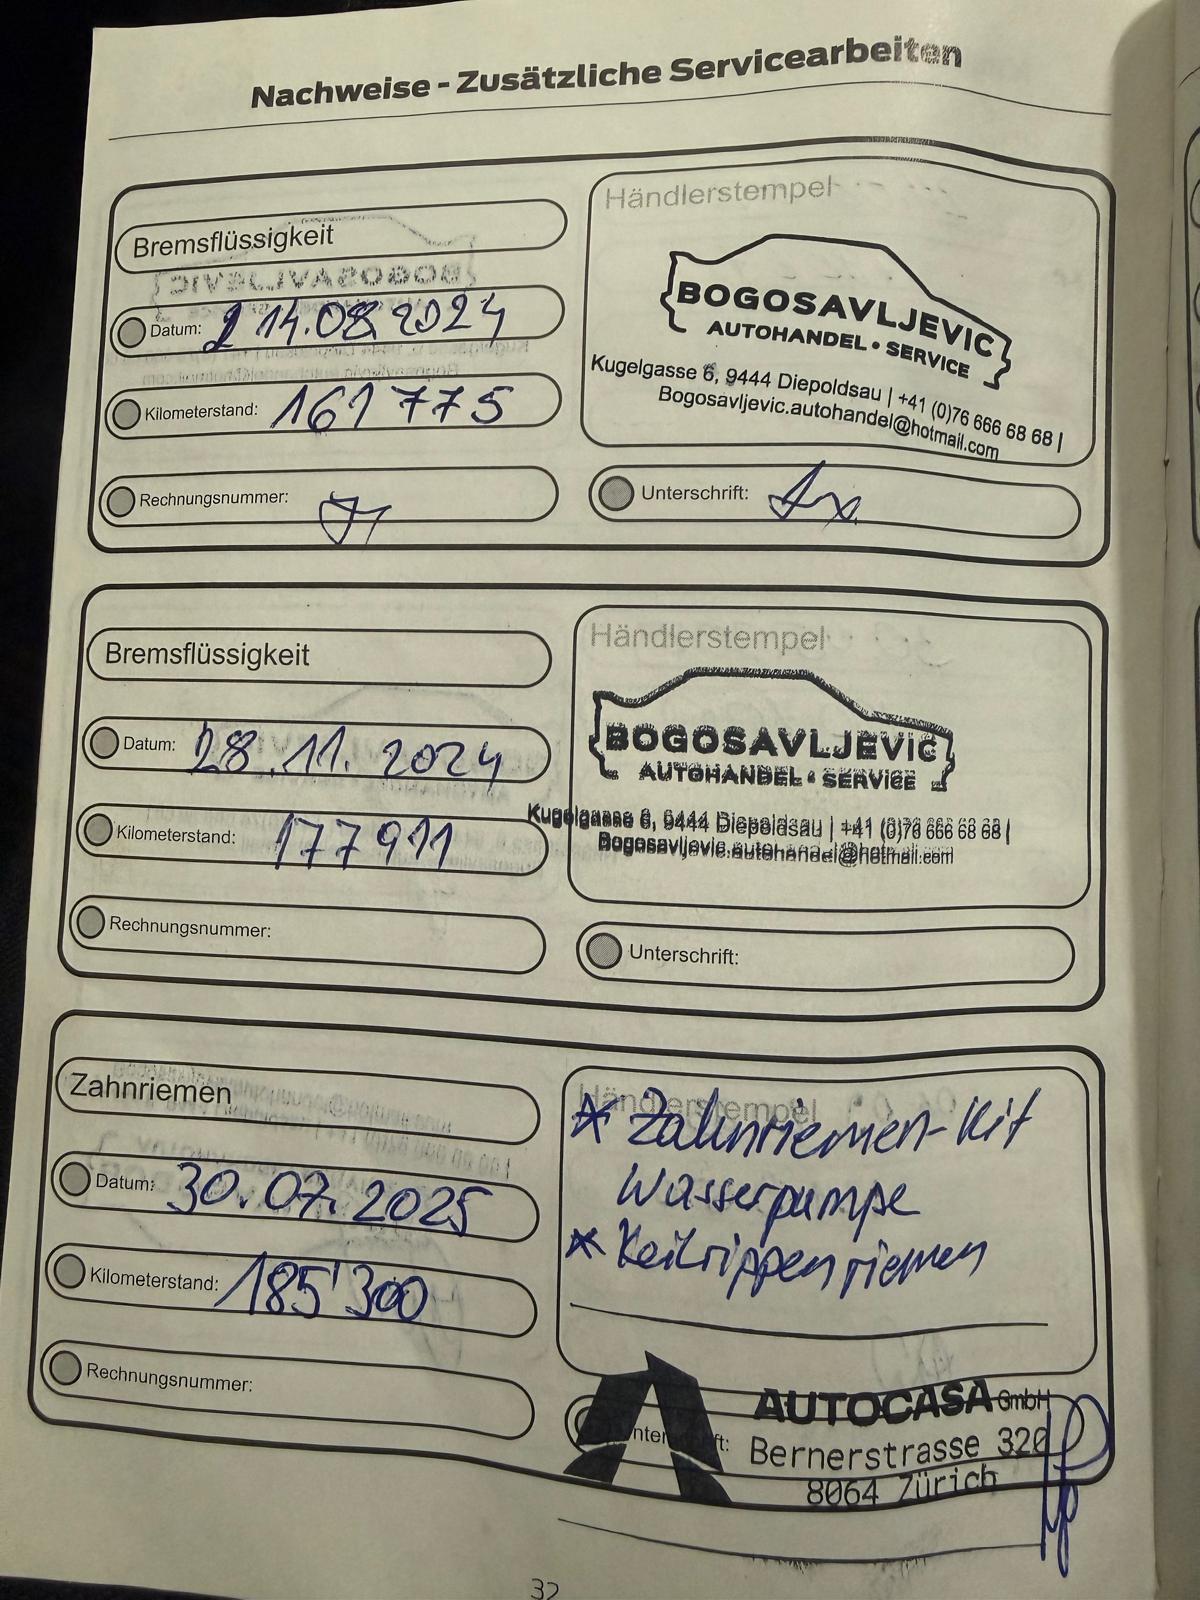 Nachweise - Zusätzliche Servicearbeiten
Bremsflüssigkeit
Datum: 14.08.2024
Kilometerstand: 161775
Rechnungsnummer:
Händlerstempel
BOGOSAVLJEVIC
AUTOHANDEL • SERVICE
Kugelgasse 6, 9444 Diepoldsau | +41 (0)76 666 68 68 |
Bogosavljevic.autohandel@hotmail.com
Unterschrift:
Bremsflüssigkeit
Datum: 28.11.2024
Kilometerstand: 177911
Rechnungsnummer:
Händlerstempel
BOGOSAVLJEVIC
AUTOHANDEL • SERVICE
Kugelgasse 6, 9444 Diepoldsau | +41 (0)76 666 68 68 |
Bogosavljevic.autohandel@hotmail.com
Unterschrift:
Zahnriemen
Datum: 30.07.2025
Kilometerstand: 185'300
Rechnungsnummer:
Händlerstempel
* Zahnriemen-Kit
Wasserpumpe
* Keilrippenriemen
Unterschrift:
AUTOCASA GmbH
Bernerstrasse 320
8064 Zürich
32